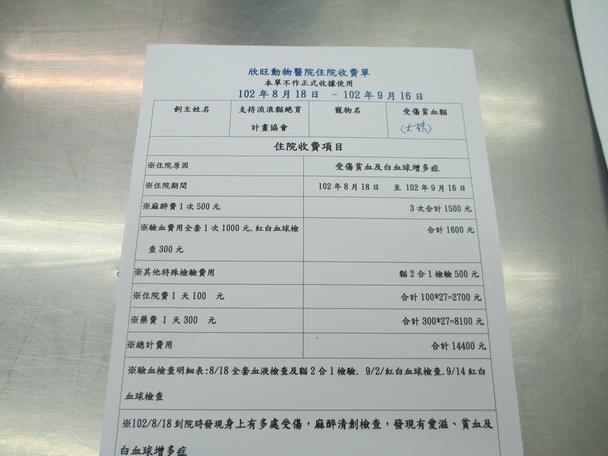 欣旺動物醫院住院收費單
本單不作正式收據使用
102 年 8 月 18 日 －102 年 9 月 16 日
飼主姓名 支持流浪貓絕育 寵物名 受傷貧血貓
計畫協會
住院收費項目
※住院原因 受傷貧血及白血球增多症
※住院期間 102 年 8 月 18 日 至 102 年 9 月 16 日
※麻醉費 1 次 500 元 3 次合計 1500 元
※驗血費用全套 1 次 1000 元.紅白血球檢 合計 1600 元
查 300 元
※其他特殊檢驗費用 貓 2 合 1 檢驗 500 元
※住院費 1 天 100 元 合計 100*27=2700 元
※藥費 1 天 300 元 合計 300*27=8100 元
※總計費用 合計 14400 元
※驗血檢查明細表:8/18 全套血液檢查及貓 2 合 1 檢驗. 9/2/紅白血球檢查.9/14 紅白
血球檢查
※102/8/18 到院時發現身上有多處受傷，麻醉清創檢查，發現有愛滋、貧血及
白血球增多症